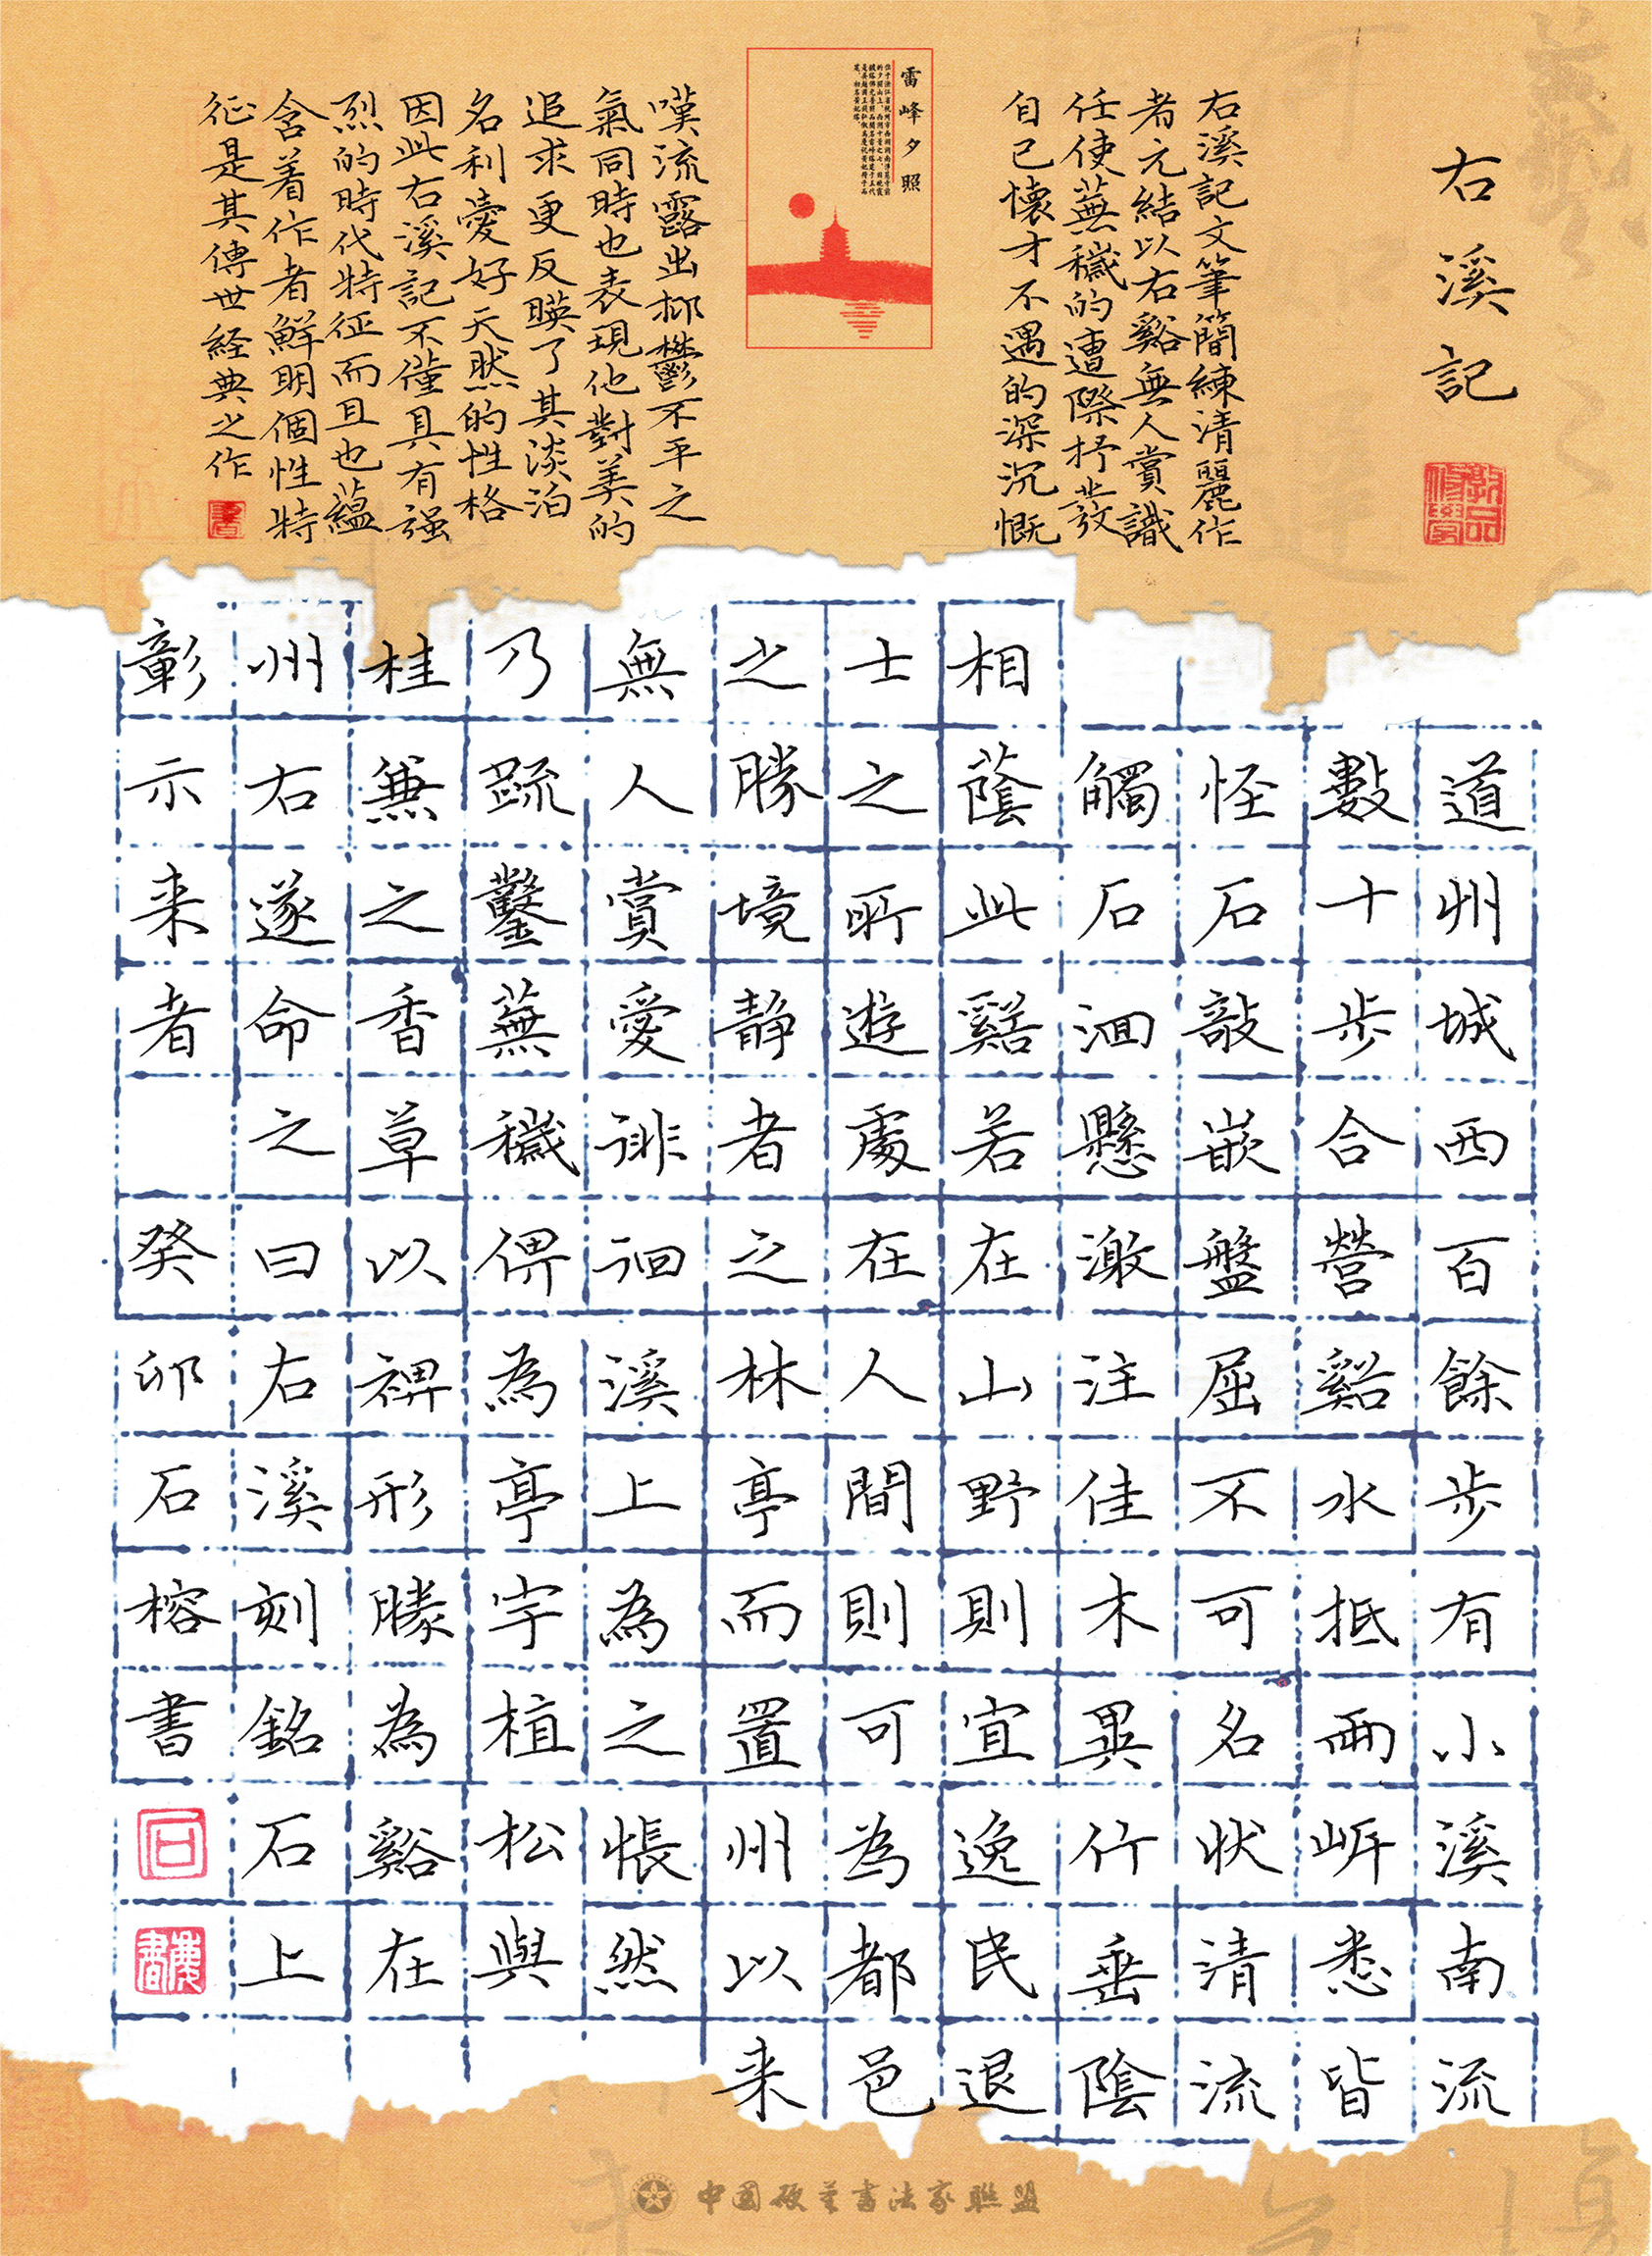 右溪記
敦品修學
右溪記文筆簡練清麗作
者元結以右谿無人賞識
任使蕪穢的遭際抒發
自己懷才不遇的深沉慨
雷峰夕照
嘆流露出抑鬱不平之
氣同時也表現他對美的
追求更反映了其淡泊
名利愛好天然的性格
因此右溪記不僅具有强
烈的時代特征而且也蘊
含着作者鮮明個性特
征是其傳世経典之作
書
道州城西百餘步有小溪南流
數十步合營谿水抵兩岸悉皆
怪石敧嵌盤屈不可名狀清流
觸石洄懸激注佳木異竹垂陰
相蔭此谿若在山野則宜逸民退
士之所遊處在人間則可為都邑
之勝境靜者之林亭而置州以來
無人賞愛徘徊溪上為之悵然
乃疏鑿蕪穢俾為亭宇植松與
桂兼之香草以裨形勝為谿在
州右遂命之曰右溪刻銘石上
彰示来者 癸卯石榕書
中国硬筆書法家聯盟